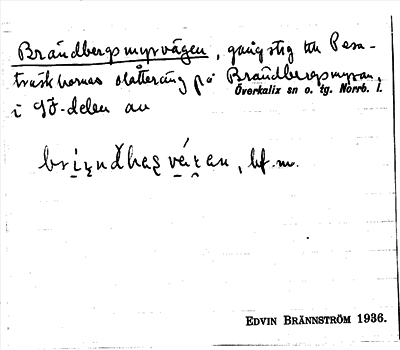 Brändbergsmyrvägen, gångstig till Pesa-
träskbornas slåtteräng på Brändbergsmyran,
Överkalix sn o. tg. Norrb. l.
i SÖ-delen av
bf. m.
EDVIN BRÄNNSTRÖM 1936.